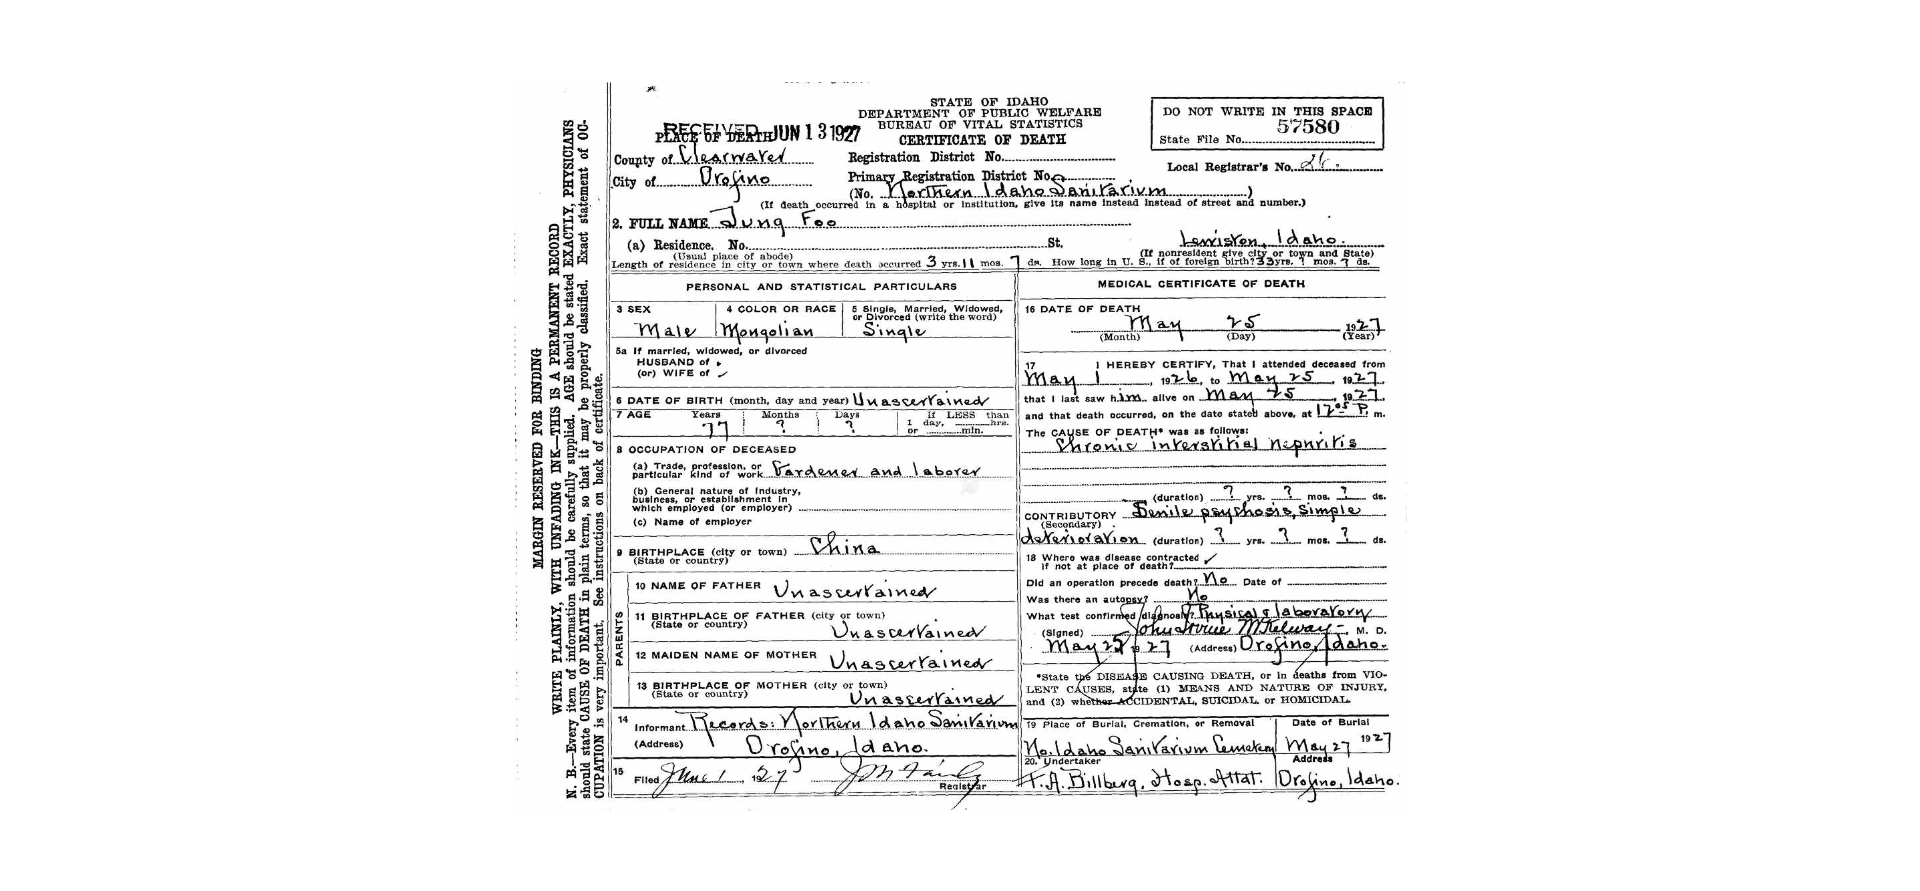 STATE OF IDAHO
DEPARTMENT OF PUBLIC WELFARE
BUREAU OF VITAL STATISTICS
CERTIFICATE OF DEATH
DO NOT WRITE IN THIS SPACE
57580
State File No.
RECEIVED JUN 13 1927
PLACE OF DEATH
County of Clearwater
Registration District No.
Local Registrar's No. 26.
City of Orofino
Primary Registration District No.
(No. Northern Idaho Sanitarium )
(If death occurred in a hospital or institution, give its name instead instead of street and number.)
2. FULL NAME Jung Foo
(a) Residence. No. St. Lewiston, Idaho.
(Usual place of abode) (If nonresident give city or town and State)
Length of residence in city or town where death occurred 3 yrs. 11 mos. 7 ds. How long in U. S., if of foreign birth? 33 yrs. ? mos. ? ds.
PERSONAL AND STATISTICAL PARTICULARS
3 SEX
Male
4 COLOR OR RACE
Mongolian
5 Single, Married, Widowed,
or Divorced (write the word)
Single
5a If married, widowed, or divorced
HUSBAND of
(or) WIFE of
6 DATE OF BIRTH (month, day and year) Unascertained
7 AGE Years Months Days If LESS than
77 ? ? 1 day, hrs.
or min.
8 OCCUPATION OF DECEASED
(a) Trade, profession, or
particular kind of work Gardener and laborer
(b) General nature of Industry,
business, or establishment in
which employed (or employer)
(c) Name of employer
9 BIRTHPLACE (city or town) China
(State or country)
PARENTS
10 NAME OF FATHER Unascertained
11 BIRTHPLACE OF FATHER (city or town)
(State or country) Unascertained
12 MAIDEN NAME OF MOTHER Unascertained
13 BIRTHPLACE OF MOTHER (city or town)
(State or country) Unascertained
14 Informant Records: Northern Idaho Sanitarium
(Address) Orofino, Idaho.
15 Filed June 1, 1927
Registrar
MEDICAL CERTIFICATE OF DEATH
16 DATE OF DEATH
May 25 1927
(Month) (Day) (Year)
17 I HEREBY CERTIFY, That I attended deceased from
May 1, 1926, to May 25, 1927.
that I last saw him alive on May 25, 1927.
and that death occurred, on the date stated above, at 12:05 P. m.
The CAUSE OF DEATH* was as follows:
Chronic interstitial nephritis
(duration) ? yrs. ? mos. ? ds.
CONTRIBUTORY Senile psychosis, simple
(Secondary)
deterioration (duration) ? yrs. ? mos. ? ds.
18 Where was disease contracted
if not at place of death?
Did an operation precede death? No Date of
Was there an autopsy? No
What test confirmed diagnosis? Physical & laboratory
(Signed) John Irvine McKelway, M. D.
May 25 1927 (Address) Orofino, Idaho.
*State the DISEASE CAUSING DEATH, or in deaths from VIO-
LENT CAUSES, state (1) MEANS AND NATURE OF INJURY,
and (2) whether ACCIDENTAL, SUICIDAL, or HOMICIDAL.
19 Place of Burial, Cremation, or Removal Date of Burial
No. Idaho Sanitarium Cemetery May 27 1927
20. Undertaker Address
F. A. Billberg, Hosp. Attat. Orofino, Idaho.
MARGIN RESERVED FOR BINDING
WRITE PLAINLY, WITH UNFADING INK—THIS IS A PERMANENT RECORD
N. B.—Every item of information should be carefully supplied. AGE should be stated EXACTLY, PHYSICIANS
should state CAUSE OF DEATH in plain terms, so that it may be properly classified. Exact statement of OC-
CUPATION is very important. See instructions on back of certificate.